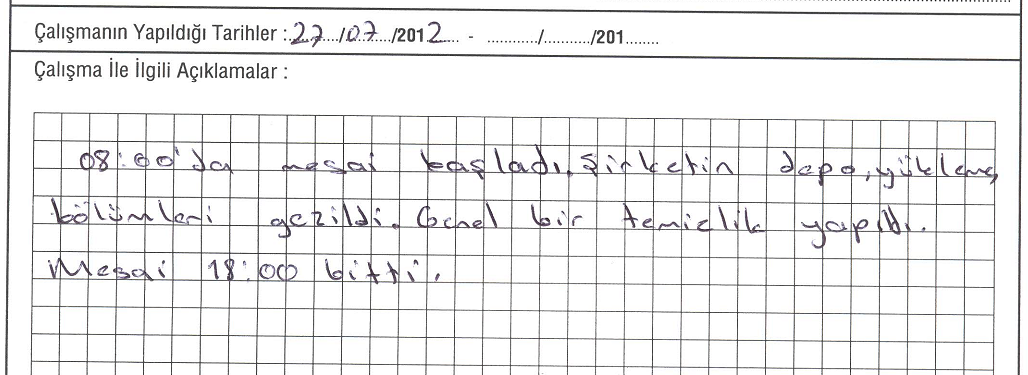 Çalışmanın Yapıldığı Tarihler :.27..../07..../2012.... - ............/.........../201........
Çalışma İle İlgili Açıklamalar :
08:00'da mesai başladı. Şirketin depo, yükleme
bölümleri gezildi. Genel bir temizlik yapıldı.
Mesai 18:00 bitti.